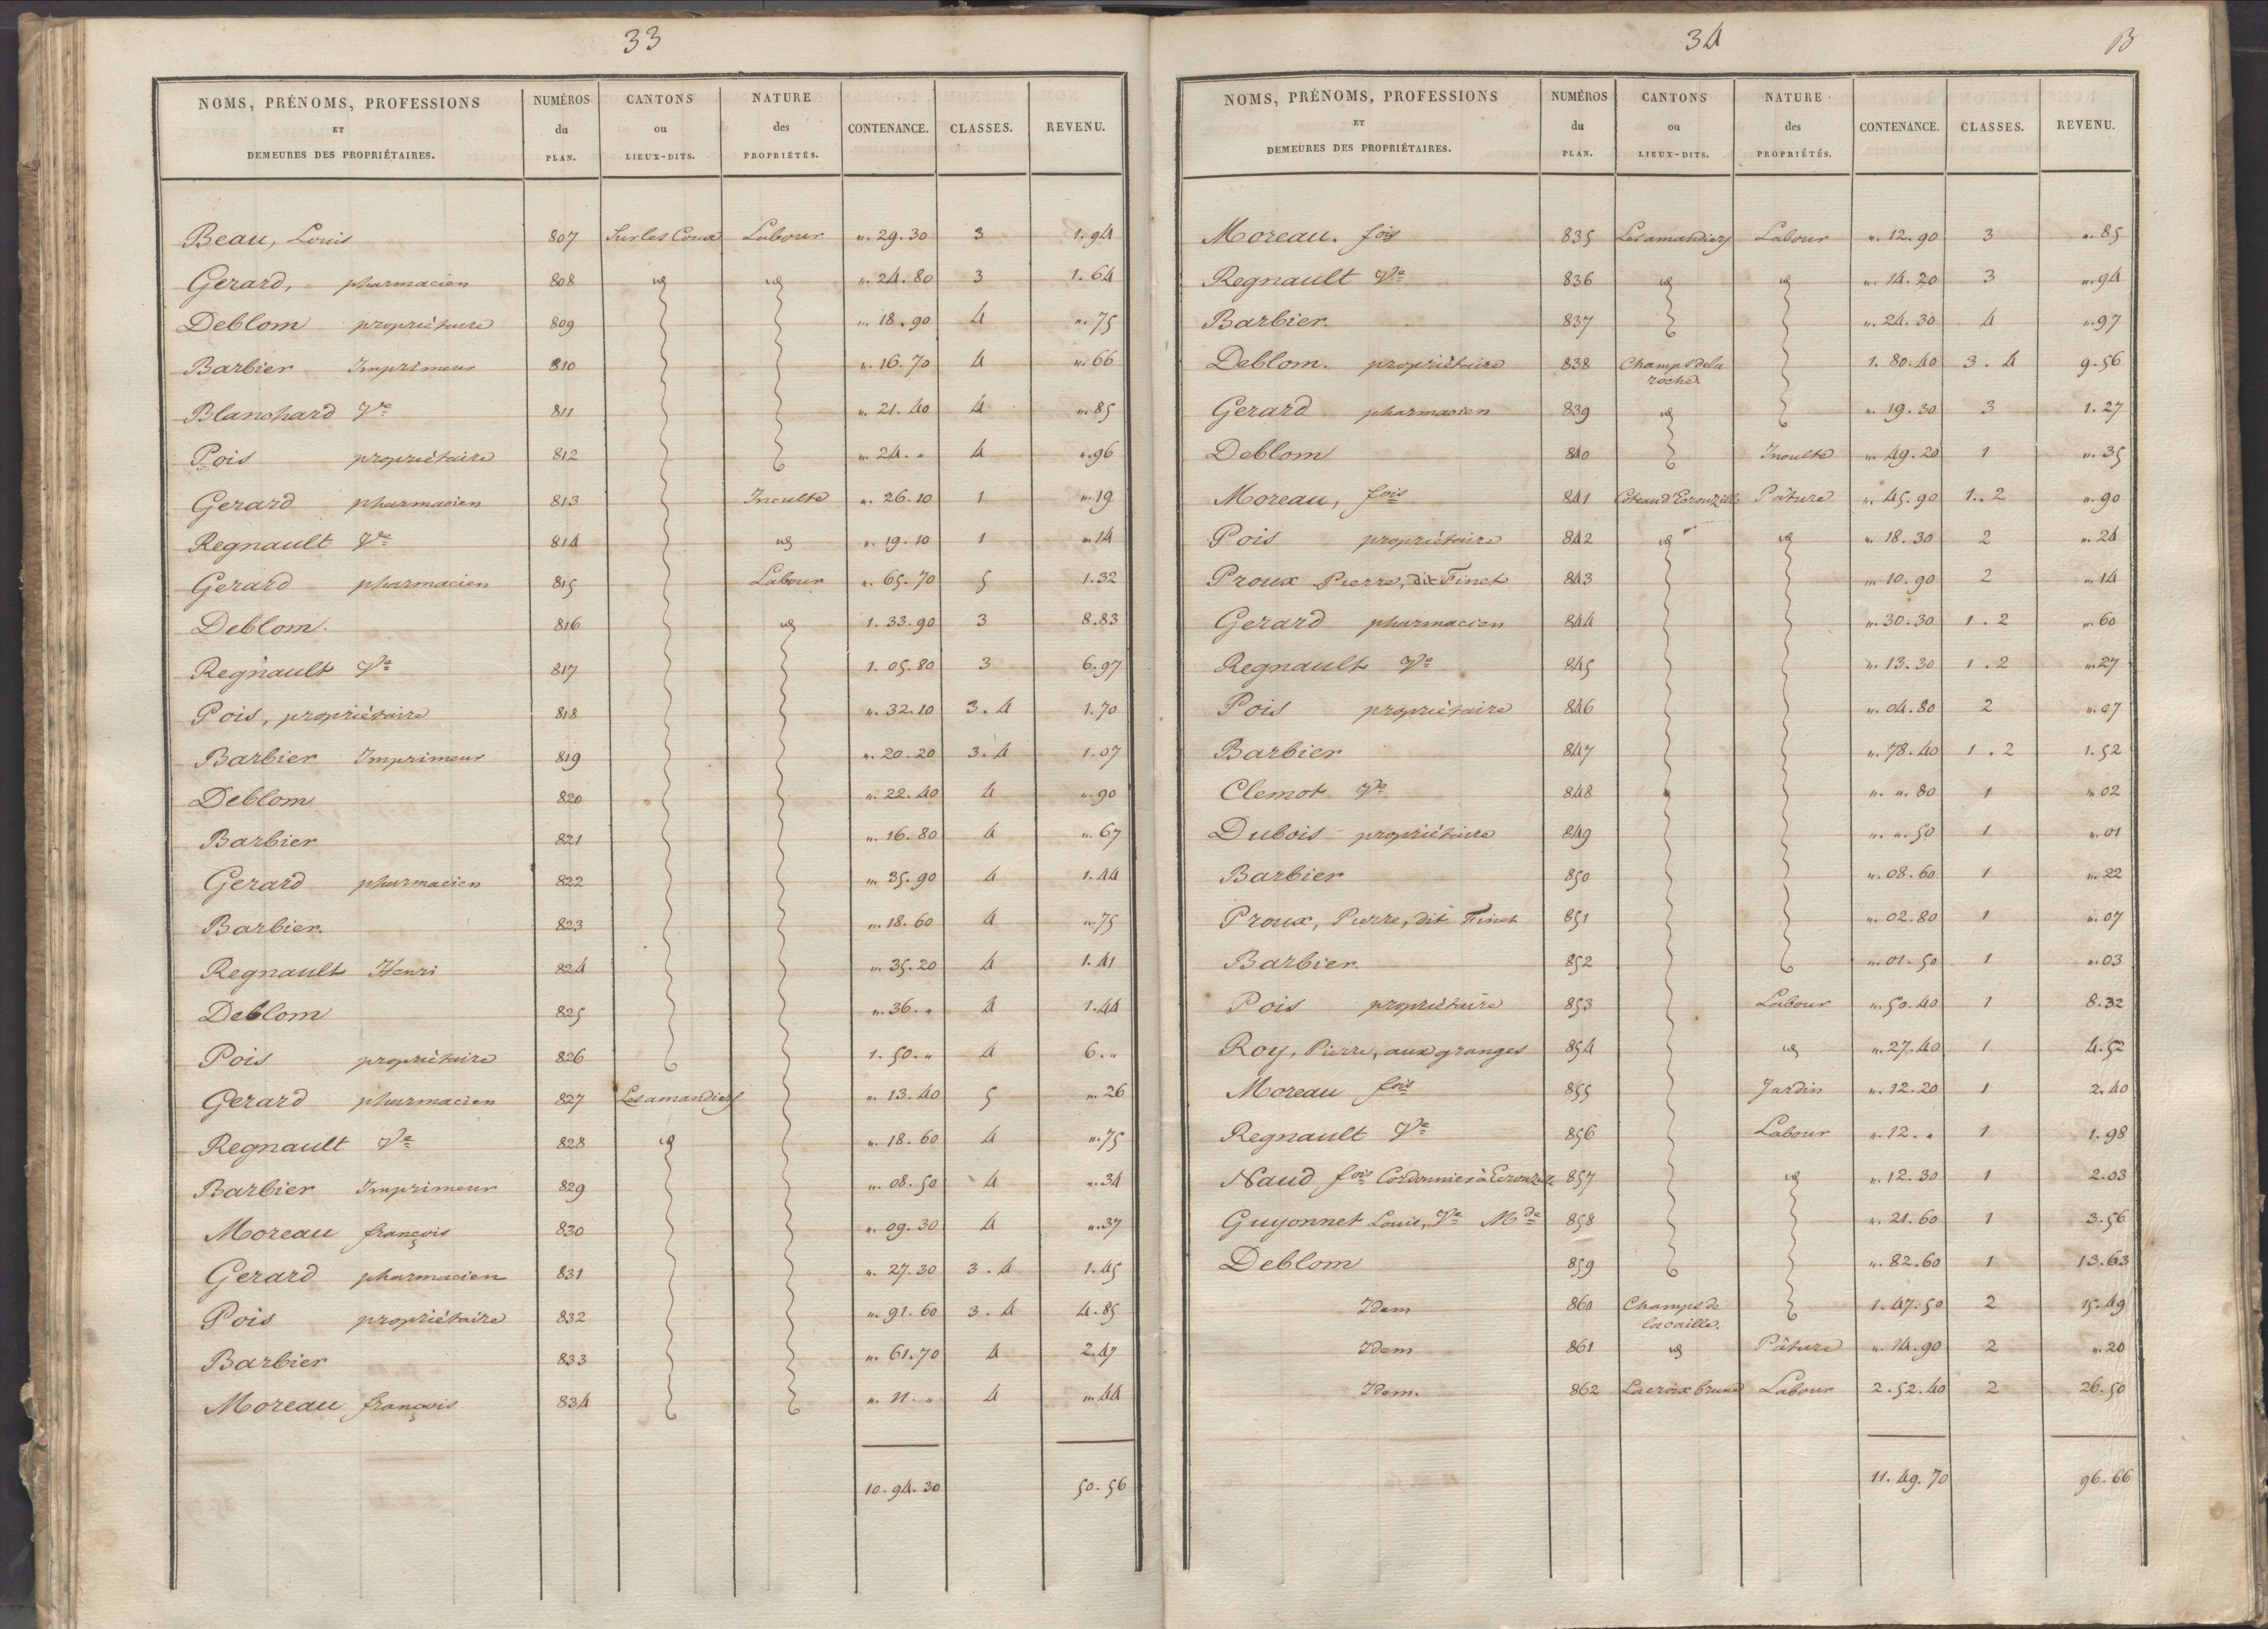 33
NOMS, PRÉNOMS, PROFESSIONS ET DEMEURES DES PROPRIÉTAIRES. NUMÉROS du PLAN. CANTONS ou LIEUX-DITS. NATURE des PROPRIÉTÉS. CONTENANCE. CLASSES. REVENU.
Beau, Louis 807 Sur les Coux Labour ". 29. 30 3 1. 94
Gerard, pharmacien 808 id id ". 24. 80 3 1. 64
Deblom propriétaire 809 ". 18. 90 4 ". 75
Barbier Imprimeur 810 ". 16. 70 4 ". 66
Blanchard Ve 811 ". 21. 40 4 ". 85
Pois propriétaire 812 ". 24. " 4 ". 96
Gerard pharmacien 813 Inculte ". 26. 10 1 ". 19
Regnault Ve 814 id ". 19. 10 1 ". 14
Gerard pharmacien 815 Labour ". 65. 70 5 1. 32
Deblom. 816 id 1. 33. 90 3 8. 83
Regnault Ve 817 1. 05. 80 3 6. 97
Pois, propriétaire 818 ". 32. 10 3. 4 1. 70
Barbier Imprimeur 819 ". 20. 20 3. 4 1. 07
Deblom 820 ". 22. 40 4 ". 90
Barbier 821 ". 16. 80 4 ". 67
Gerard pharmacien 822 ". 35. 90 4 1. 44
Barbier. 823 ". 18. 60 4 ". 75
Regnault Henri 824 ". 35. 20 4 1. 41
Deblom 825 ". 36. " 4 1. 44
Pois propriétaire 826 1. 50. " 4 6. "
Gerard pharmacien 827 Les amandiers ". 13. 40 5 ". 26
Regnault Ve 828 id ". 18. 60 4 ". 75
Barbier Imprimeur 829 ". 08. 50 4 ". 34
Moreau françois 830 ". 09. 30 4 ". 37
Gerard pharmacien 831 ". 27. 30 3. 4 1. 45
Pois propriétaire 832 ". 91. 60 3. 4 4. 85
Barbier 833 ". 61. 70 4 2. 47
Moreau françois 834 ". 11. " 4 ". 44
10. 94. 30 50. 56
34 B
NOMS, PRÉNOMS, PROFESSIONS ET DEMEURES DES PROPRIÉTAIRES. NUMÉROS du PLAN. CANTONS ou LIEUX-DITS. NATURE des PROPRIÉTÉS. CONTENANCE. CLASSES. REVENU.
Moreau. fois 835 Les amandiers Labour ". 12. 90 3 ". 85
Regnault Ve 836 id id ". 14. 20 3 ". 94
Barbier. 837 ". 24. 30 4 ". 97
Deblom. propriétaire 838 Champs de la roche. 1. 80. 40 3. 4 9. 56
Gerard pharmacien 839 id ". 19. 30 3 1. 27
Deblom 840 Inculte ". 49. 20 1 ". 35
Moreau, fois 841 Coteau d'Ecrouzille Pâture ". 45. 90 1. 2 ". 90
Pois propriétaire 842 id id ". 18. 30 2 ". 24
Proux Pierre, dit Finet 843 ". 10. 90 2 ". 14
Gerard pharmacien 844 ". 30. 30 1. 2 ". 60
Regnault Ve 845 ". 13. 30 1. 2 ". 27
Pois propriétaire 846 ". 04. 80 2 ". 07
Barbier 847 ". 78. 40 1. 2 1. 52
Clemot Ve 848 ". ". 80 1 ". 02
Dubois propriétaire 849 ". ". 50 1 ". 01
Barbier 850 ". 08. 60 1 ". 22
Proux, Pierre, dit Finet 851 ". 02. 80 1 ". 07
Barbier. 852 ". 01. 50 1 ". 03
Pois propriétaire 853 Labour ". 50. 40 1 8. 32
Roy, Pierre, aux granges 854 id ". 27. 40 1 4. 52
Moreau fois 855 Jardin ". 12. 20 1 2. 40
Regnault Ve 856 Labour ". 12. " 1 1. 98
Naud fois Cordonnier à Ecrouzille 857 id ". 12. 30 1 2. 03
Guyonnet Louis, Ve Mde 858 ". 21. 60 1 3. 56
Deblom 859 ". 82. 60 1 13. 63
Idem 860 Champs de la caille. 1. 47. 50 2 15. 49
Idem 861 id Pâture ". 14. 90 2 ". 20
Idem. 862 La croix brune Labour 2. 52. 40 2 26. 50
11. 49. 70 96. 66